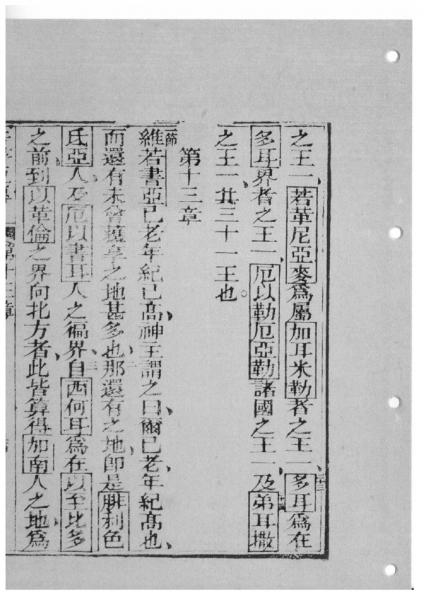 之王一、若革尼亞麥爲屬加耳米勒者之王一、多耳爲在
多耳界者之王一、厄以勒厄亞勒諸國之王一、及弟耳撒
之王一、共三十一王也。
第十三章
一節
維若書亞已老年紀已高、神主謂之曰、爾已老年紀高也、
而還有未曾獲享之地甚多也、那還有之地卽是腓利色
氏亞人、及厄以書耳人之徧界、自西何耳爲在以至比多
之前、到以革倫之界向北方者、此皆算得加南人之地、爲
第十三章